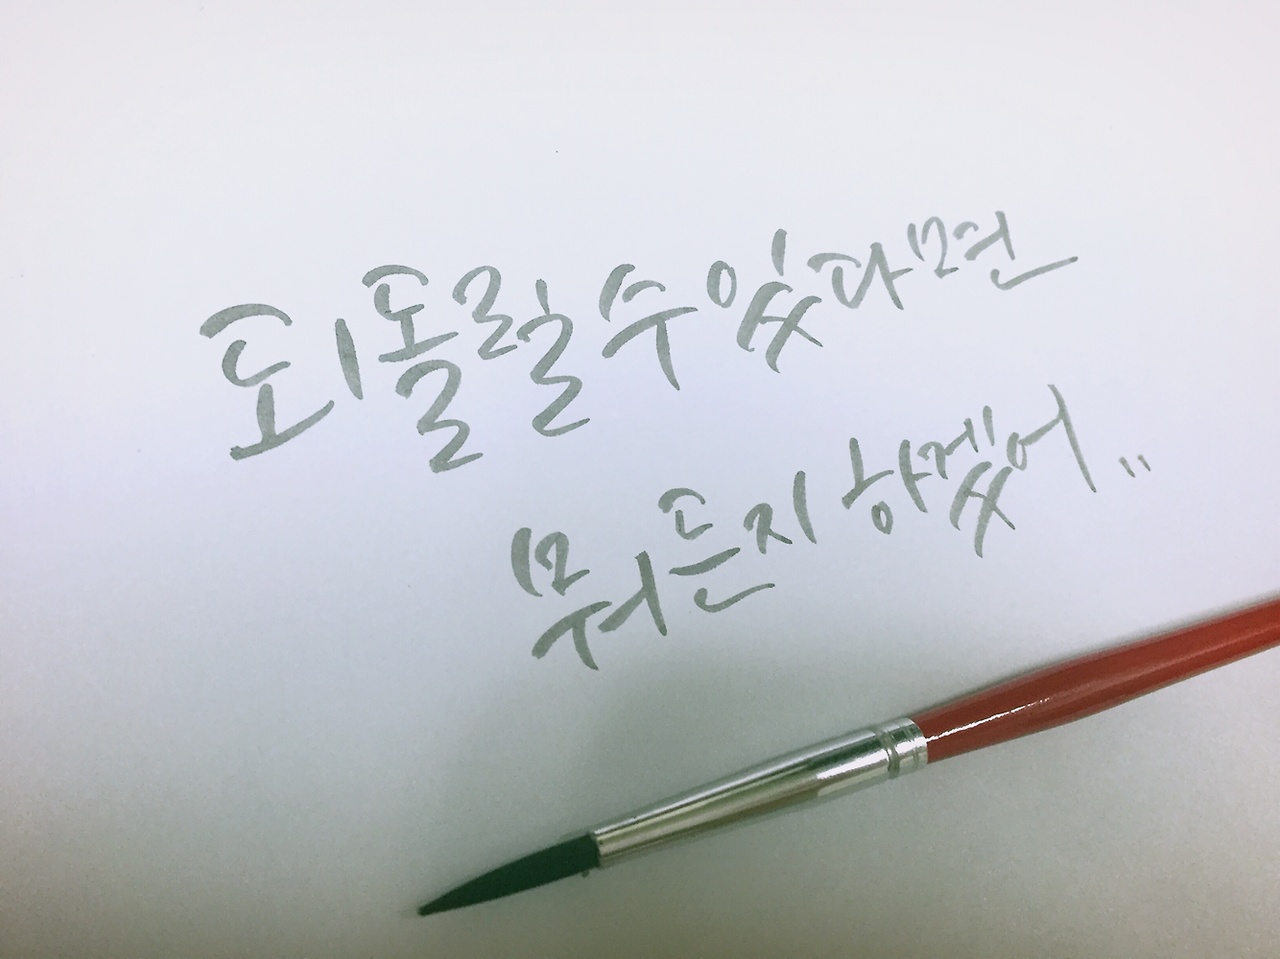 되돌릴 수 있다면
뭐든지 하겠어..